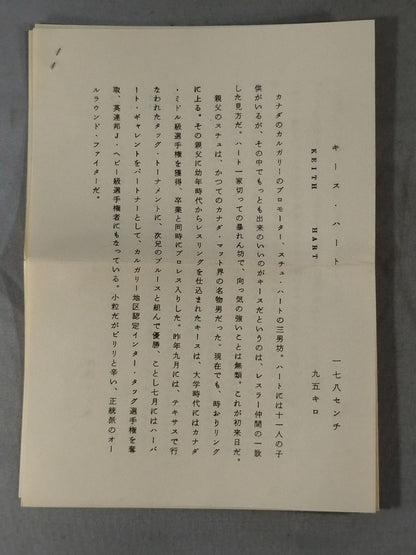 キース・ハート　一七八センチ
KEITH HART　九五キロ
カナダのカルガリーのプロモーター、スチュ・ハートの三男坊。ハートには十一人の子
供がいるが、その中でもっとも出来のいいのがキースだというのは、レスラー仲間の一致
した見方だ。ハート一家切っての暴れん坊で、向っ気の強いことは無類。これが初来日だ。
親父のスチュは、かつてのカナダ・マット界の名物男だった。現在でも、時おりリング
に上る。その親父に幼年時代からレスリングを仕込まれたキースは、大学時代にはカナダ
・ミドル級選手権を獲得、卒業と同時にプロレス入りした。昨年九月には、テキサスで行
なわれたタッグ・トーナメントに、次兄のブルースと組んで優勝、ことし七月にはハーバ
ート・ギャレントをパートナーとして、カルガリー地区認定インター・タッグ選手権を奪
取、英連邦J・ヘビー級選手権者にもなっている。小粒だがピリリと辛い、正統派のオー
ルラウンド・ファイターだ。